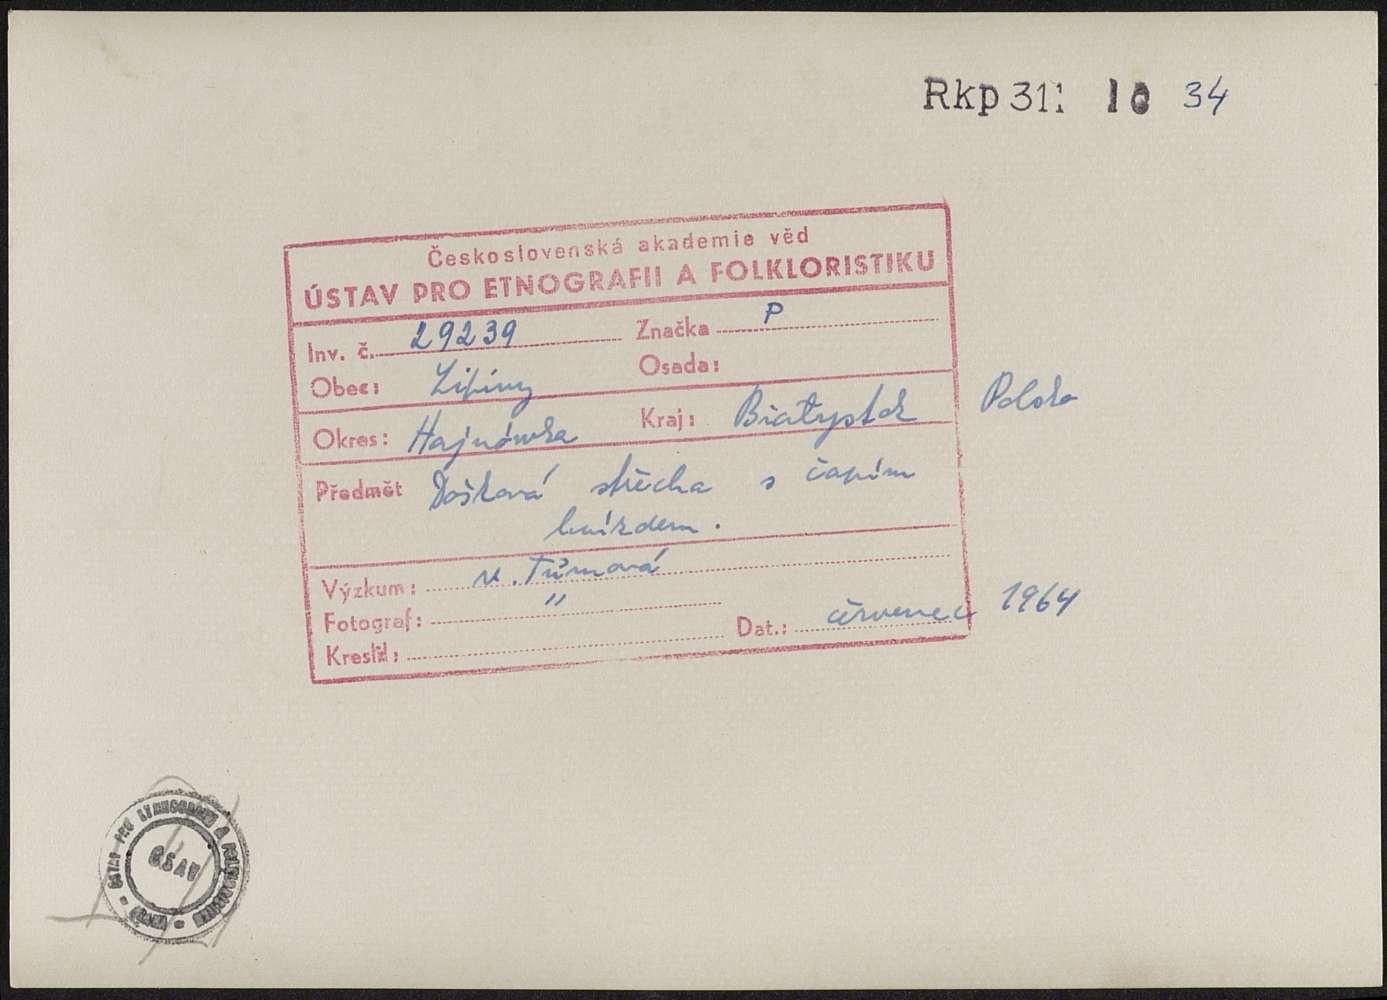 Rkp 311 10 34
Československá akademie věd
ÚSTAV PRO ETNOGRAFII A FOLKLORISTIKU
Inv. č. 29239 Značka P
Obec: Lipiny Osada:
Okres: Hajnówka Kraj: Białystok Polsko
Předmět Došková střecha s čapím
hnízdem.
Výzkum: Tůmová
Fotograf: "
Kreslil: Dat.: červenec 1964
ÚSTAV PRO ETNOGRAFII A FOLKLORISTIKU
ČSAV